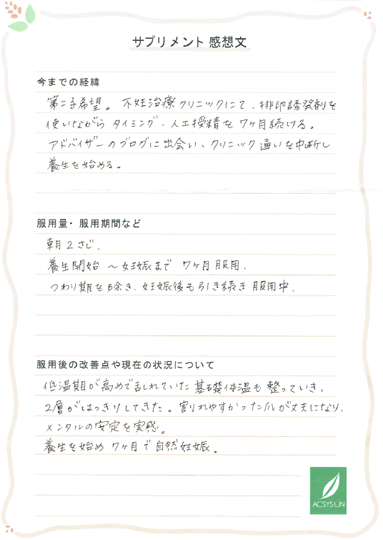 サプリメント 感想文
今までの経緯
第二子希望。不妊治療クリニックにて、排卵誘発剤を
使いながら タイミング、人工授精を 7ヶ月続ける。
アドバイザーのブログに出会い、クリニック通いを中断し
養生を始める。
服用量・服用期間など
朝 2さじ。
養生開始 ～ 妊娠まで 7ヶ月 服用。
つわり期を除き、妊娠後も引き続き 服用中。
服用後の改善点や現在の状況について
低温期が高めで乱れていた 基礎体温も 整っていき、
2層がはっきりしてきた。割れやすかった爪が丈夫になり、
メンタルの安定を実感。
養生を始め 7ヶ月で自然妊娠。
ACSYSUN